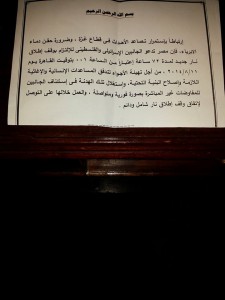 بسم الله الرحمن الرحيم
إرتباطاً بإستمرار تصاعد الأحداث فى قطاع غزة ، وضرورة حقن دماء
الأبرياء، فإن مصر تدعو الجانبين الإسرائيلى والفلسطينى للإلتزام بوقف إطلاق
نار جديد لمدة ٧٢ ساعة إعتباراً من الساعة ٠٠١ بتوقيت القاهرة يوم
٢٠١٤/٨/١١ ، من أجل تهيئة الأجواء لتدفق المساعدات الإنسانية والإغاثية
اللازمة وإصلاح البنية التحتية، وإستغلال تلك الهدنة فى إستئناف الجانبين
للمفاوضات غير المباشرة بصورة فورية ومتواصلة ، والعمل خلالها على التوصل
لإتفاق وقف إطلاق نار شامل ودائم .